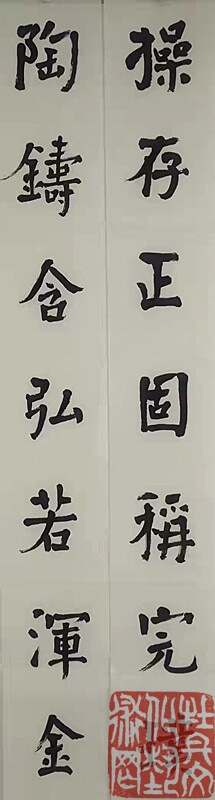 操存正固稱完璞
陶鑄含弘若渾金